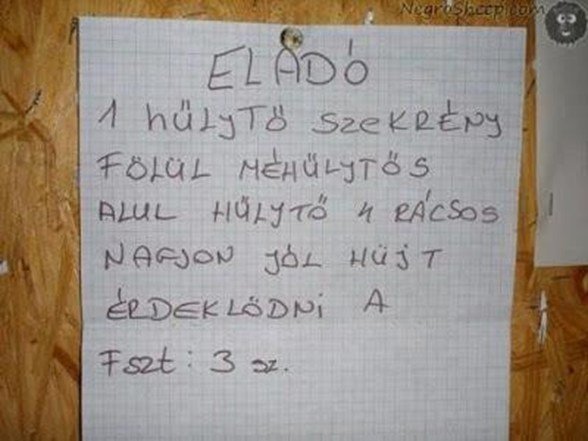 NegroSheep.com
ELADÓ
1 HŰLYTŐ SZEKRÉNY
FÖLÜL MÉHŰLYTŐS
ALUL HŰLYTŐ 4 RÁCSOS
NAGJON JÓL HÜJT
ÉRDEKLŐDNI A
Fszt: 3 sz.